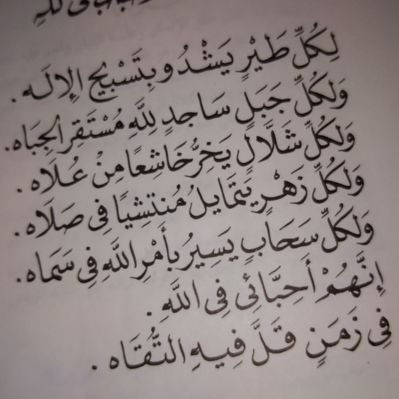 لِكُلِّ طَيْرٍ يَشْدُو بِتَسْبِيحِ الإِلَه .
وَلِكُلِّ جَبَلٍ سَاجِدٍ لِلَّهِ مُسْتَقِرِ الجِبَاه.
وَلِكُلِّ شَلَّالٍ يَخِرُّ خَاشِعًا مِنْ عُلَاه .
وَلِكُلِّ زَهْرٍ يَتَمَايَلُ مُنتَشِيًا فِي صَلَاه .
وَلِكُلِّ سَحَابٍ يَسِيرُ بِأَمْرِ اللَّهِ فِي سَمَاه .
إِنَّهُمْ أَحِبَّائِي فِي اللَّهِ .
فِي زَمَنٍ قَلَّ فِيهِ التُّقَاه .